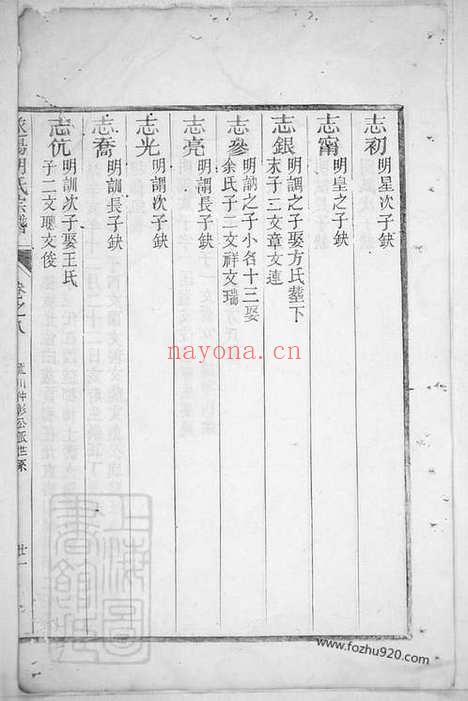 志初 明星次子缺
志甯 明皇之子缺
志銀 明調之子娶方氏墓下
末子三文章文連
志參 明訥之子小名十三娶
余氏子二文祥文瑞
志亮 明謂長子缺
志光 明謂次子缺
志喬 明訓長子缺
志伉 明訓次子娶王氏
子二文聰文俊
胡氏宗譜
卷之八
川仲彰公派世系
廿一
上海圖書館藏
nayona.cn
www.fozhu920.com